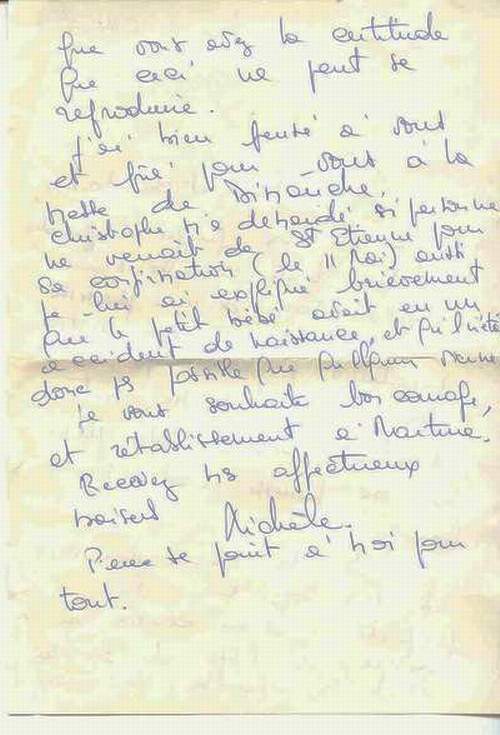 que vous avez la certitude
que ceci ne peut se
reproduire.
J'ai bien pensé à vous
et prié pour vous à la
messe de Dimanche.
Christophe m'a demandé si personne
ne venait de St Etienne pour
sa confirmation (le 11 Mai) aussi
je lui ai expliqué brièvement
que le petit bébé avait eu un
accident de naissance, et qu'il n'était
donc pas possible que quelqu'un vienne
Je vous souhaite bon courage,
et rétablissement à Martine.
Recevez mes affectueux
baisers Michèle.
Pierre se joint à moi pour
tout.